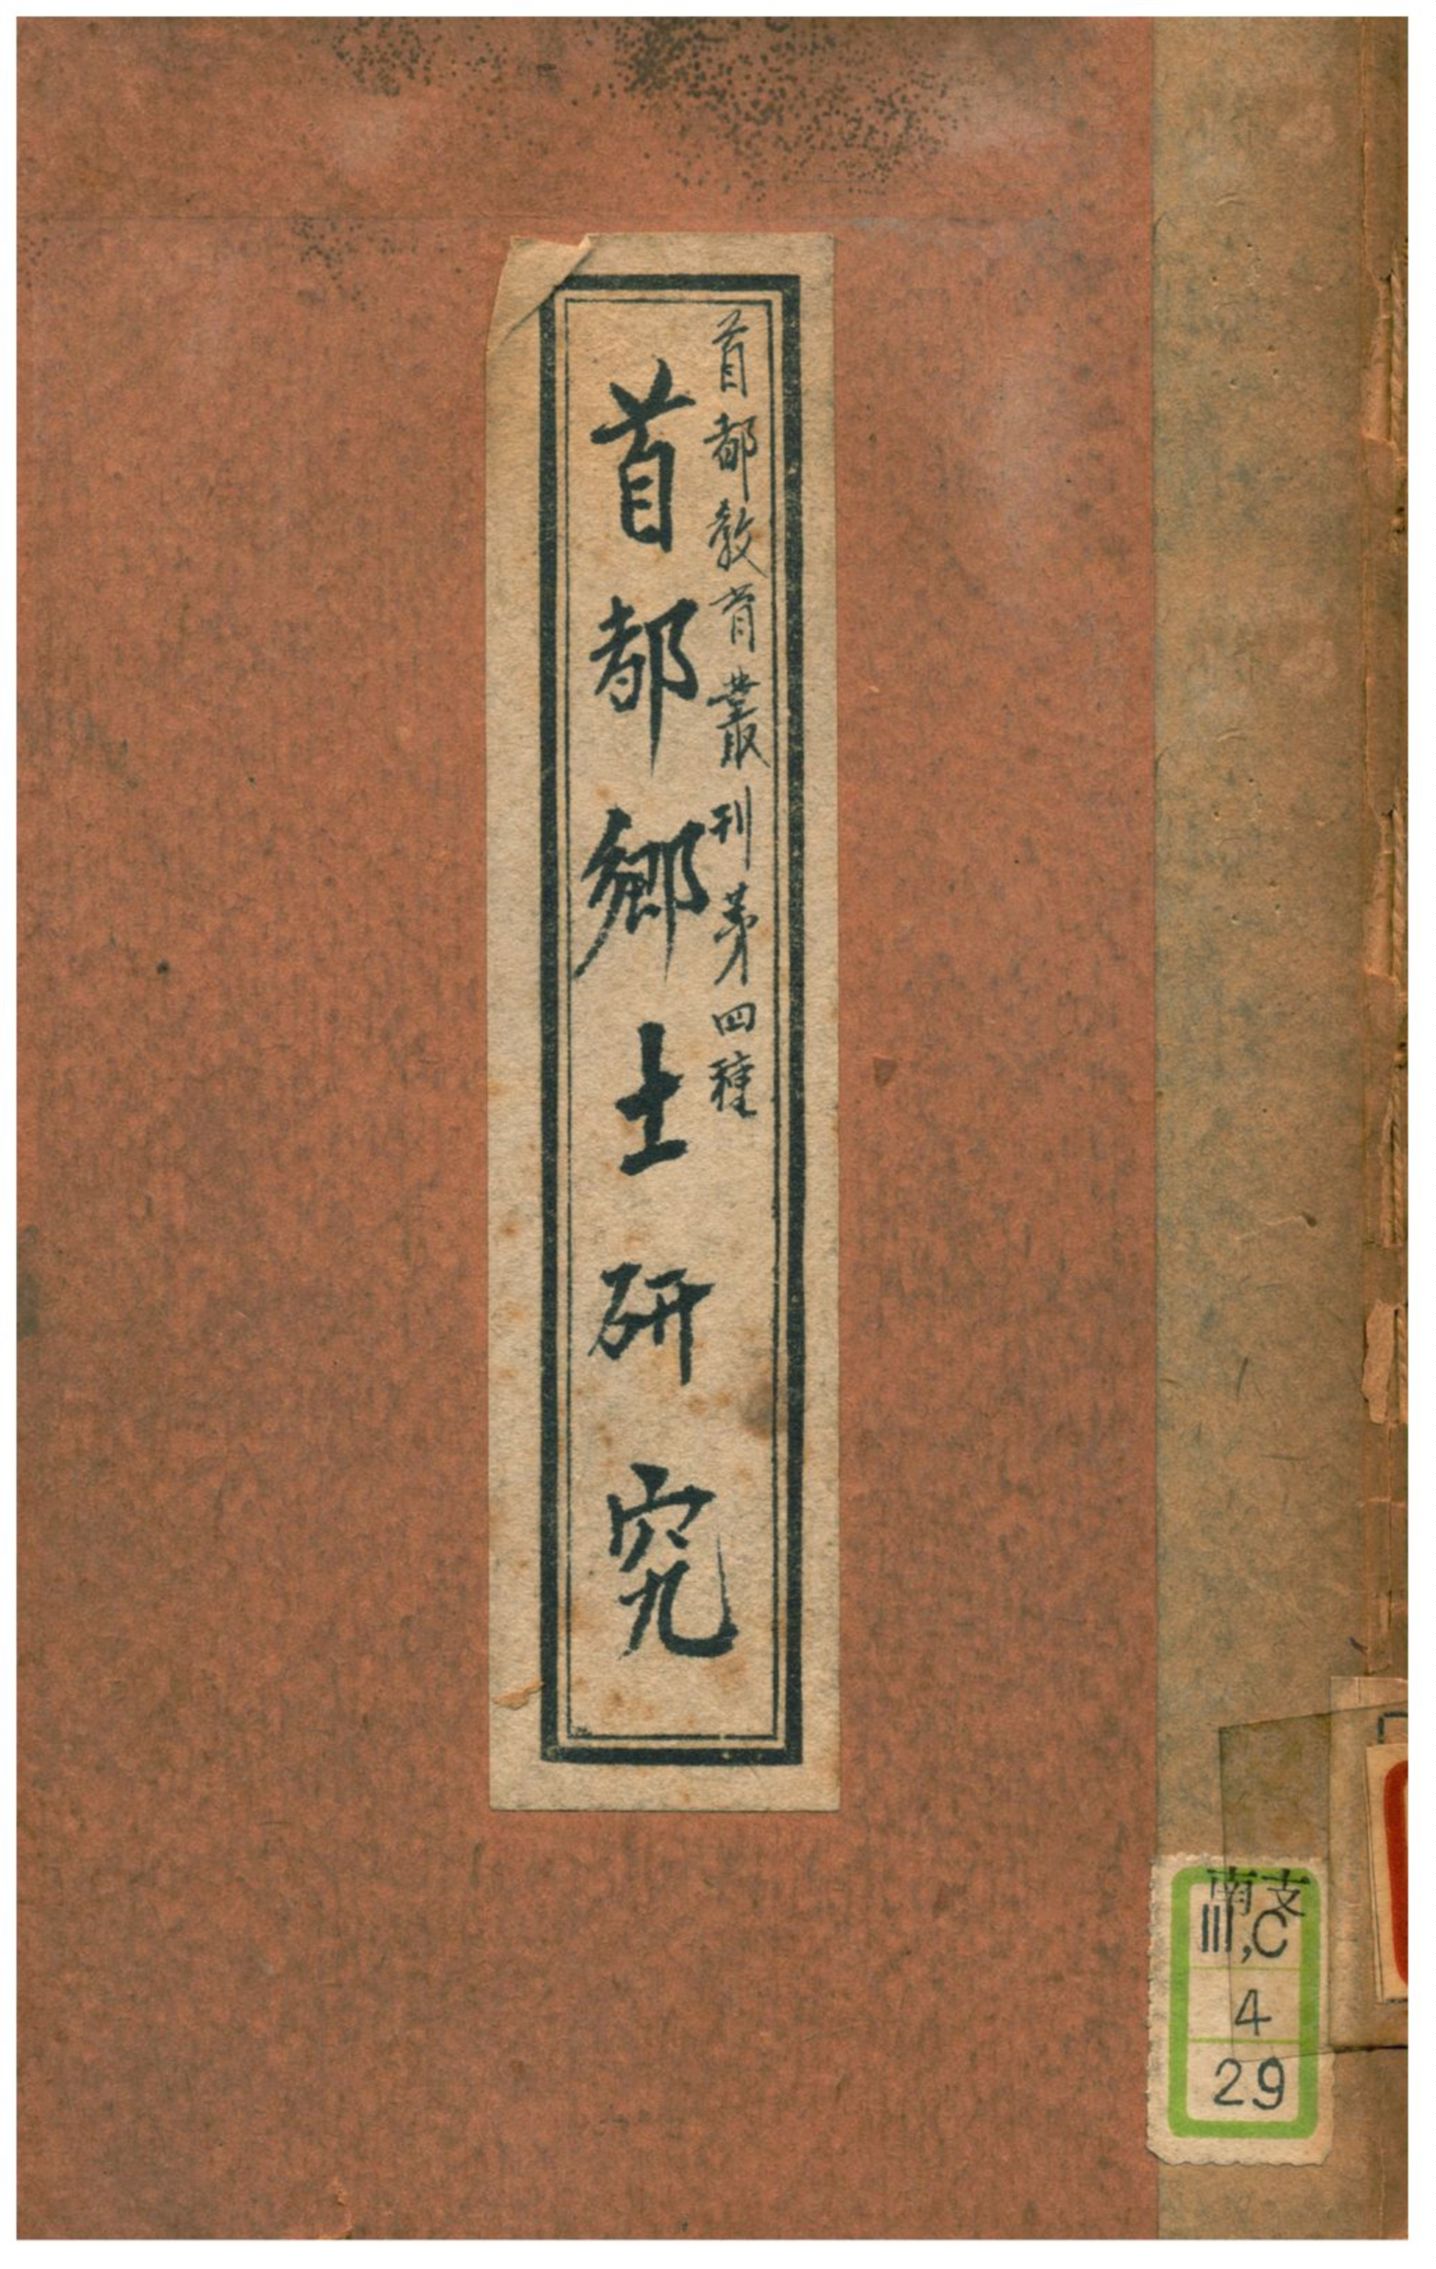 首都教育叢刊第四種
首都鄉土研究
南支
III,C
4
29